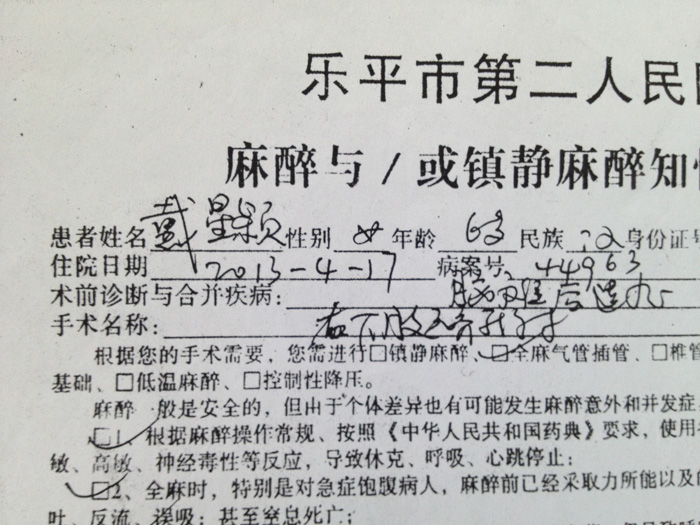 乐平市第二人民
麻醉与/或镇静麻醉知
患者姓名 戴星颖 性别 女 年龄 6岁 民族 汉 身份证号
住院日期 2013-4-17 病案号 44963
术前诊断与合并疾病: 脑瘫后遗症
手术名称: 右下肢
根据您的手术需要,您需进行□镇静麻醉、□全麻气管插管、□椎管
基础、□低温麻醉、□控制性降压。
麻醉一般是安全的,但由于个体差异也有可能发生麻醉意外和并发症
□1、根据麻醉操作常规、按照《中华人民共和国药典》要求,使用
敏、高敏、神经毒性等反应,导致休克、呼吸、心跳停止;
□2、全麻时,特别是对急症饱腹病人,麻醉前已经采取力所能以及
吐、反流、误吸;甚至窒息死亡;